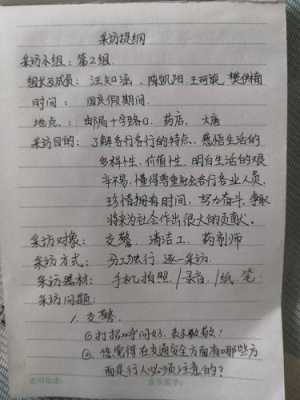 采访提纲
采访小组：第2组
组长及成员：汪知涵、陈凯阳 王珂妮 樊伊楠
时间：国庆假期间
地点：邮局十字路口、药店、大唐
采访目的：了解各行各行的特点、感悟生活的
多样性、价值性、明白生活的艰
辛不易，懂得尊重社会各行各业人员，
珍惜拥有时间，努力奋斗，争取
将来为社会作出很大的贡献。
采访对象：交警 清洁工 药剂师
采访方式：分工执行，逐一采访
采访器材：手机拍照/录音/纸、笔
采访问题
1. 交警
①打招呼问好，表示敬意！
②您觉得在交通安全方面有哪些方
面是行人必须注意的？